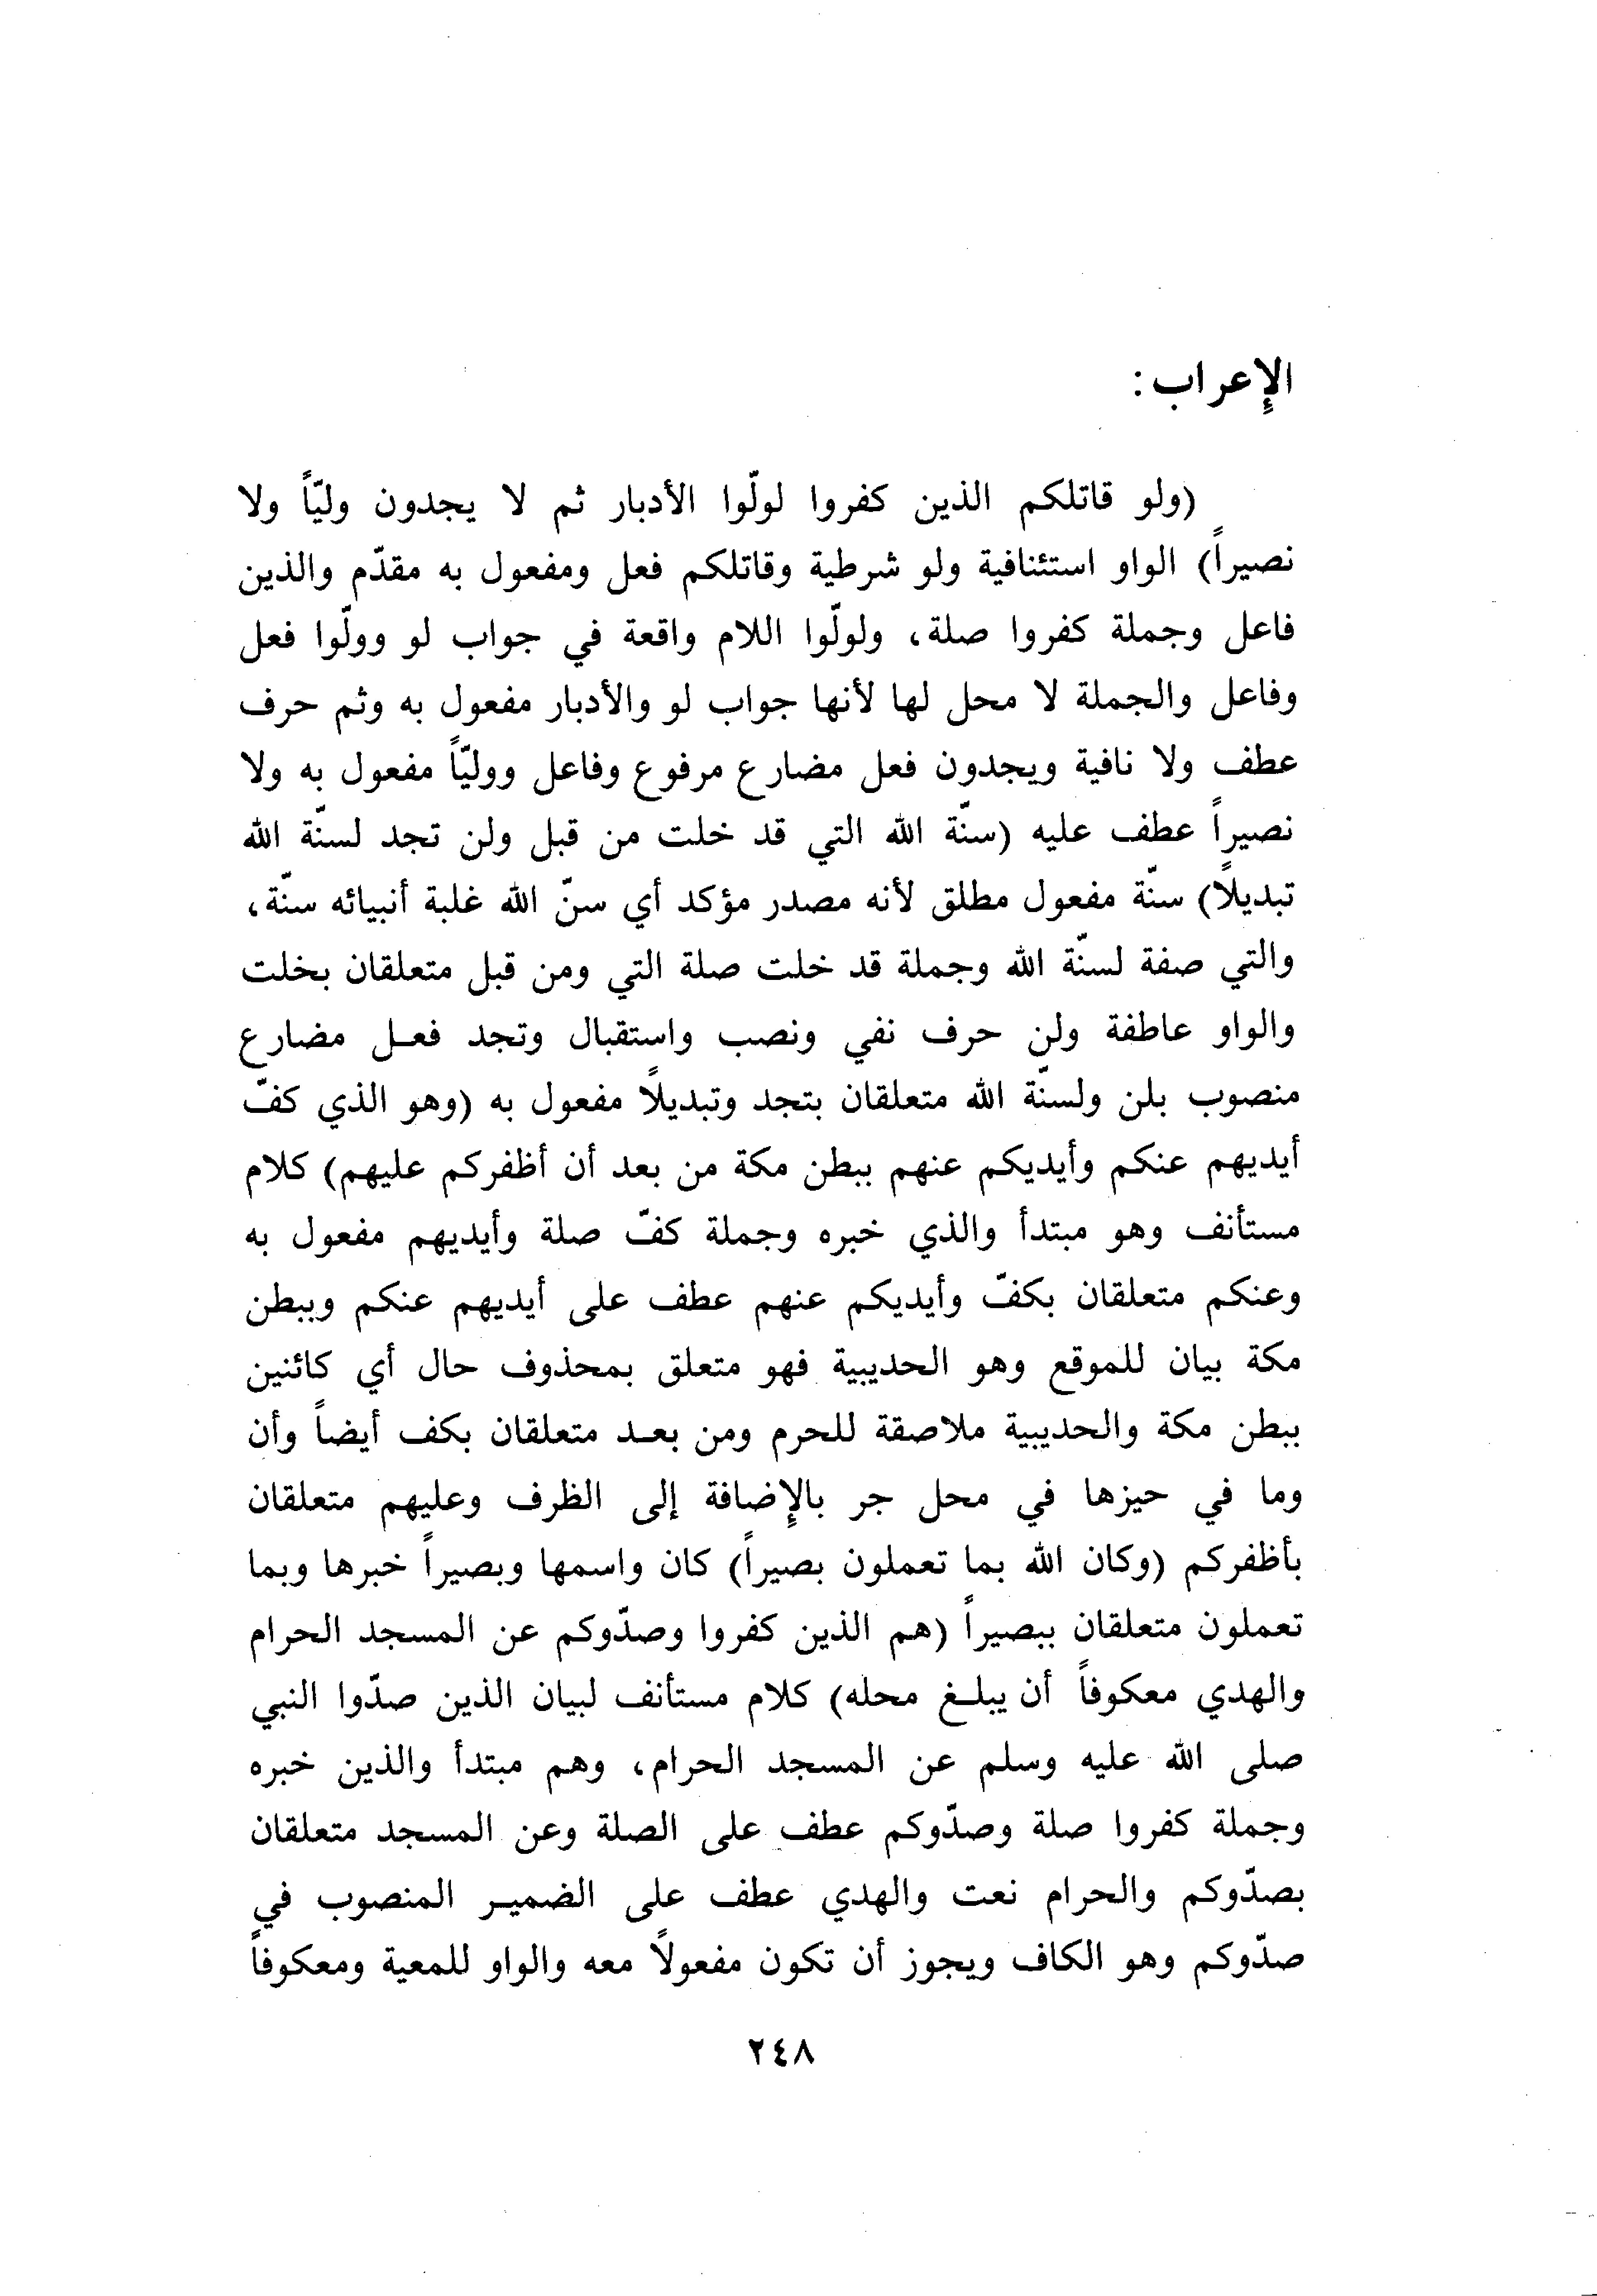 الإعراب :
(ولو قاتلكم الذين كفروا لولّوا الأدبار ثم لا يجدون وليّاً ولا
نصيراً) الواو استئنافية ولو شرطية وقاتلكم فعل ومفعول به مقدّم والذين
فاعل وجملة كفروا صلة، ولولّوا اللام واقعة في جواب لو وولّوا فعل
وفاعل والجملة لا محل لها لأنها جواب لو والأدبار مفعول به وثم حرف
عطف ولا نافية ويجدون فعل مضارع مرفوع وفاعل ووليّاً مفعول به ولا
نصيراً عطف عليه (سنّة الله التي قد خلت من قبل ولن تجد لسنّة الله
تبديلاً) سنّة مفعول مطلق لأنه مصدر مؤكد أي سنّ الله غلبة أنبيائه سنّة،
والتي صفة لسنّة الله وجملة قد خلت صلة التي ومن قبل متعلقان بخلت
والواو عاطفة ولن حرف نفي ونصب واستقبال وتجد فعـل مضارع
منصوب بلن ولسنّة الله متعلقان بتجد وتبديلاً مفعول به (وهو الذي كفّ
أيديهم عنكم وأيديكم عنهم ببطن مكة من بعد أن أظفركم عليهم) كلام
مستأنف وهو مبتدأ والذي خبره وجملة كفّ صلة وأيديهم مفعول به
وعنكم متعلقان بكفّ وأيديكم عنهم عطف على أيديهم عنكم وببطن
مكة بيان للموقع وهو الحديبية فهو متعلق بمحذوف حال أي كائنين
ببطن مكة والحديبية ملاصقة للحرم ومن بعـد متعلقان بكف أيضاً وأن
وما في حيزها في محل جر بالإضافة إلى الظرف وعليهم متعلقان
بأظفركم (وكان الله بما تعملون بصيراً) كان واسمها وبصيراً خبرها وبما
تعملون متعلقان ببصيراً (هم الذين كفروا وصدّوكم عن المسجد الحرام
والهدي معكوفاً أن يبلـغ محله) كلام مستأنف لبيان الذين صدّوا النبي
صلى الله عليه وسلم عن المسجد الحرام، وهم مبتدأ والذين خبره
وجملة كفروا صلة وصدّوكم عطف على الصلة وعن المسجد متعلقان
بصدّوكم والحرام نعت والهدي عطف على الضميـر المنصوب في
صدّوكم وهو الكاف ويجوز أن تكون مفعولاً معه والواو للمعية ومعكوفاً
٢٤٨